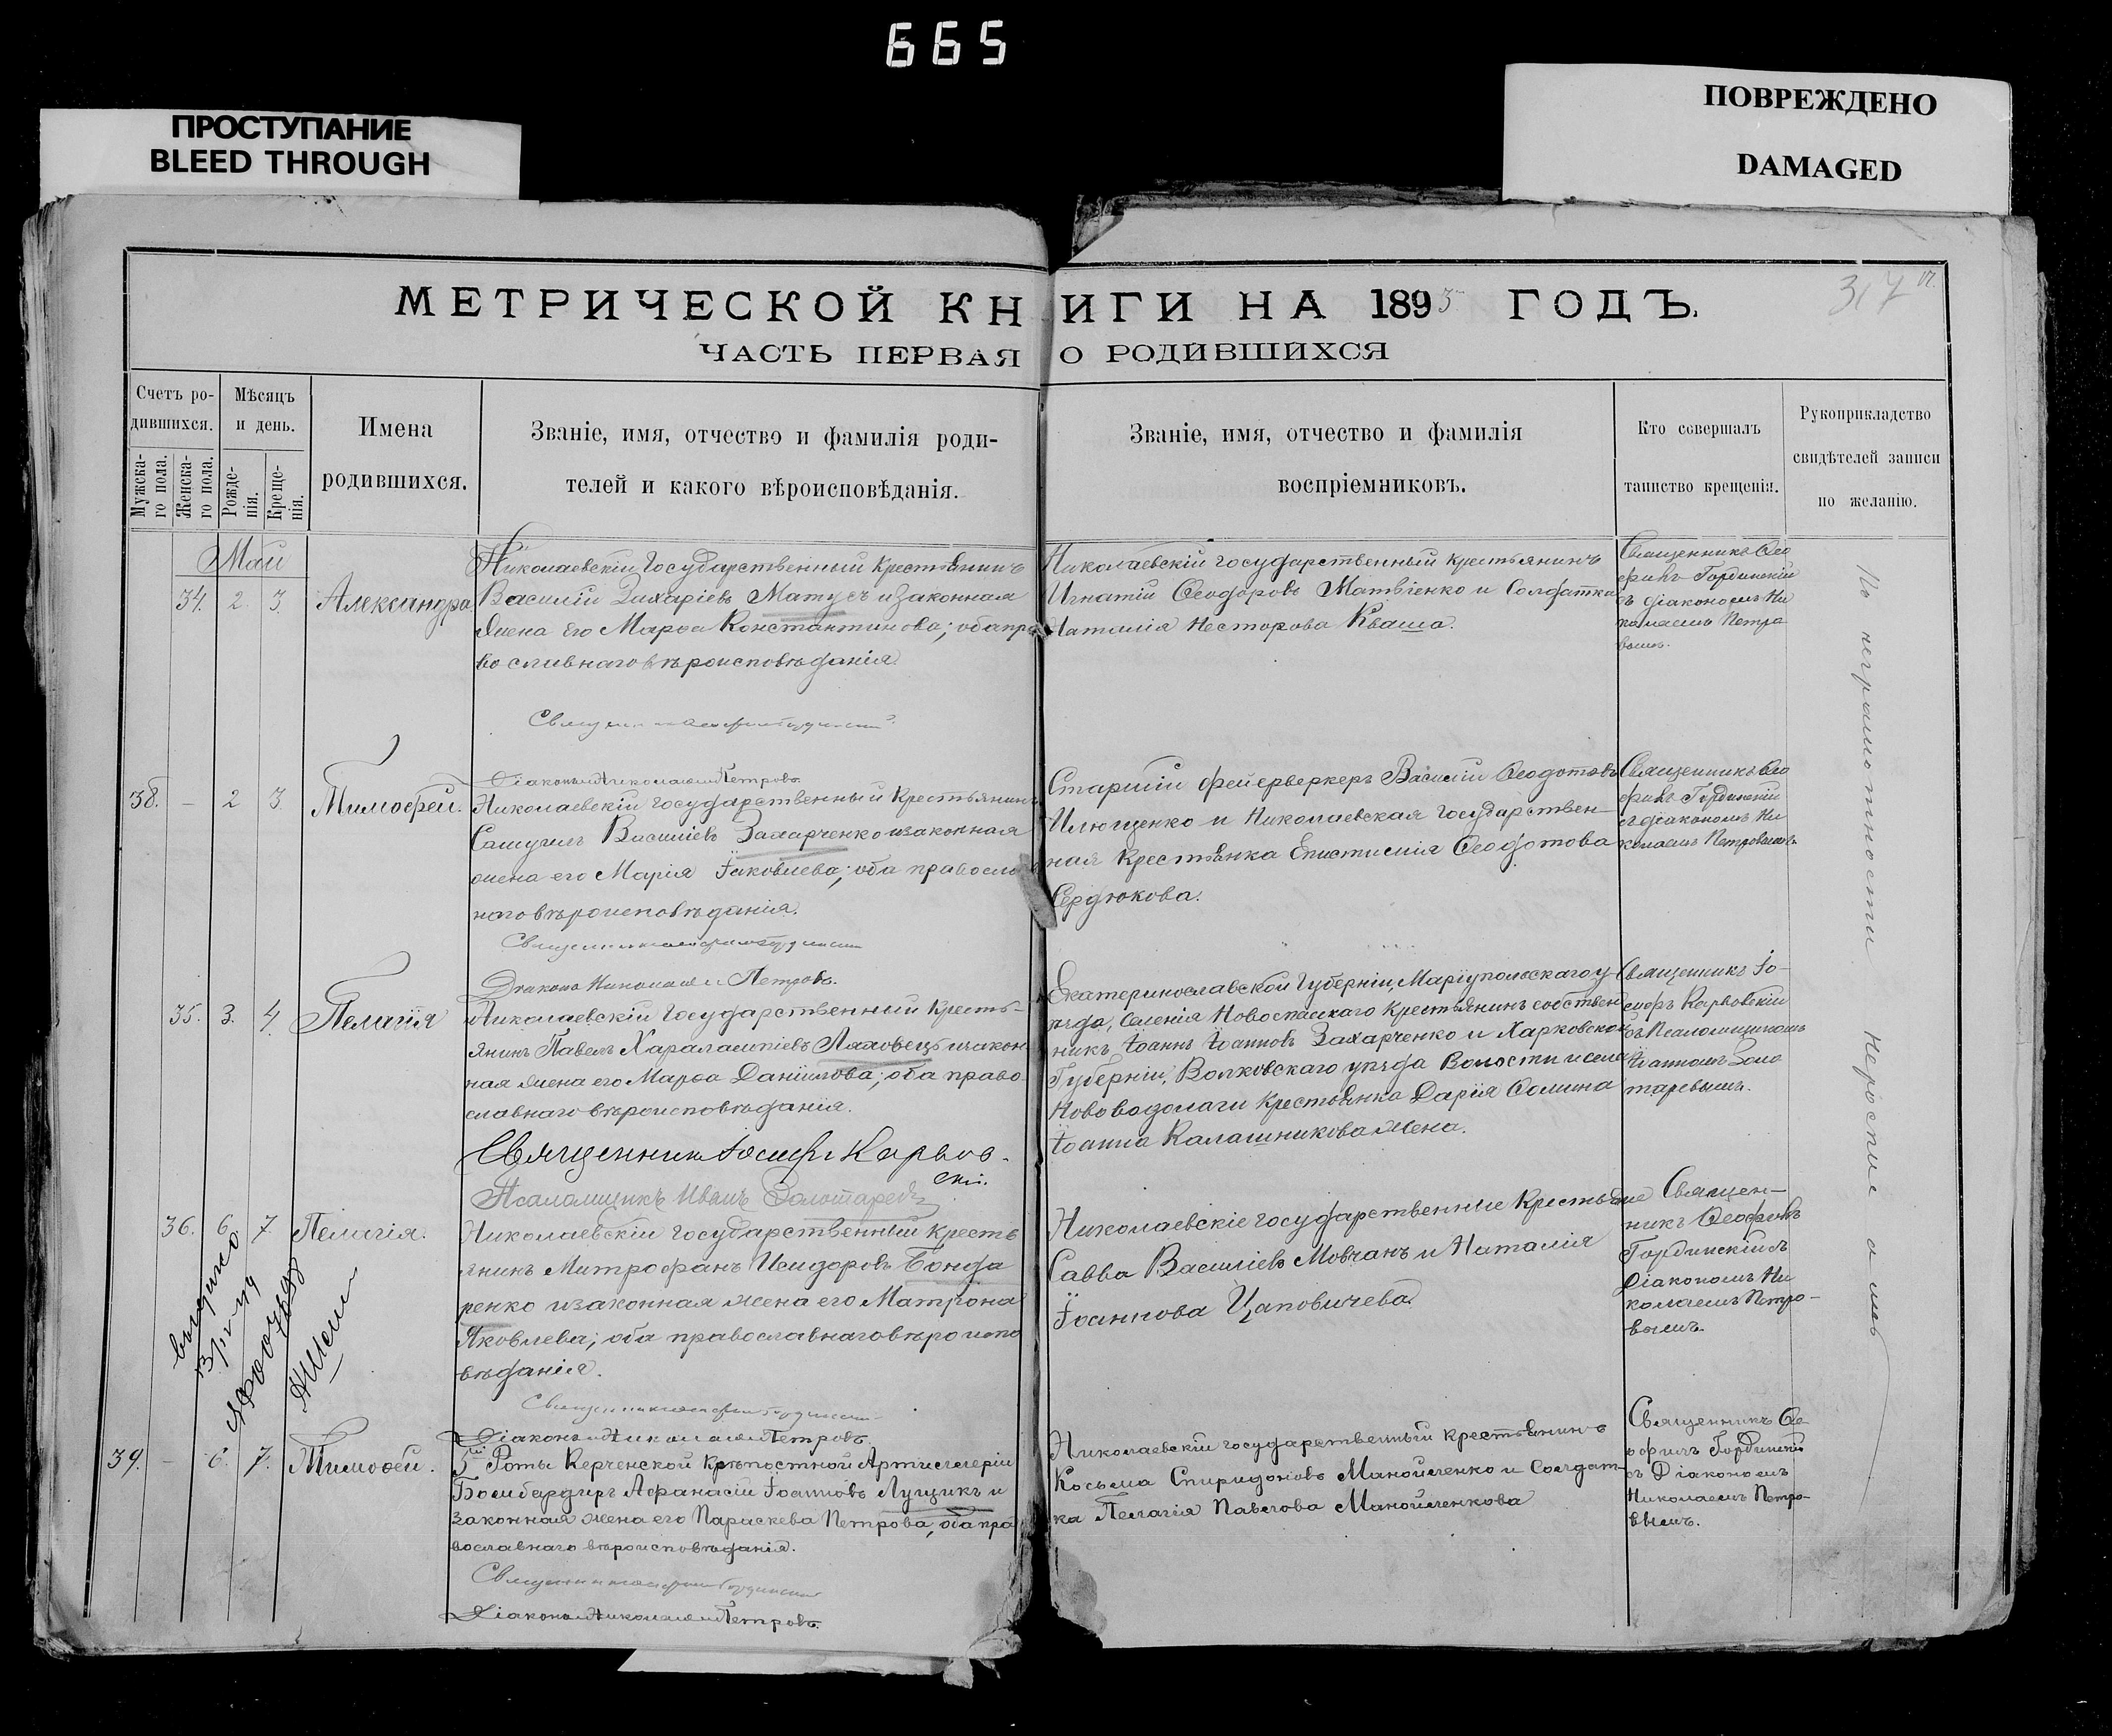 665
ПРОСТУПАНИЕ
BLEED THROUGH
ПОВРЕЖДЕНО
DAMAGED
317
МЕТРИЧЕСКОЙ КНИГИ НА 1895 ГОДЪ.
ЧАСТЬ ПЕРВАЯ О РОДИВШИХСЯ
Счетъ ро-
дившихся.
Мужска-
го пола.
Женска-
го пола.
Мѣсяцъ
и день.
Рожде-
нія.
Креще-
нія.
Имена
родившихся.
Званіе, имя, отчество и фамилія роди-
телей и какого вѣроисповѣданія.
Званіе, имя, отчество и фамилія
воспріемниковъ.
Кто совершалъ
таинство крещенія.
Рукоприкладство
свидѣтелей записи
по желанію.
Май
34. 2. 3. Александра
Николаевскій Государственный крестьянинъ
Василій Захаріевъ Матусъ и законная
жена его Марѳа Константинова; оба пра
вославнаго вѣроисповѣданія.
Николаевскій государственный крестьянинъ
Игнатій Ѳеодоровъ Матвіенко и Солдатка
Наталія Несторова Кваша.
Священникъ Ѳео
филъ Гординскій
съ діакономъ Ни
колаемъ Петро
вымъ.
Діаконъ Николай Петровъ.
38. – 2 3. Тимоѳей.
Николаевскій государственный крестьянинъ
Самуилъ Василіевъ Захарченко и законная
жена его Марія Іаковлева; оба правосла
наго вѣроисповѣданія.
Старшій фейерверкеръ Василій Ѳеодотовъ
Илющенко и Николаевская государствен-
ная крестьянка Епистимія Ѳеодотова
Сердюкова.
Священникъ Ѳео
филъ Гординскій
съ діакономъ Ни
колаемъ Петровымъ
Діаконъ Николай Петровъ.
35. 3. 4. Пелагія
Николаевскій Государственный кресть-
янинъ Павелъ Харалампіевъ Ляховецъ и закон
ная жена его Марѳа Даніилова; оба право
славнаго вѣроисповѣданія.
Екатеринославской Губерніи, Маріупольскаго у-
ѣзда, селенія Новоспасскаго крестьянинъ собствен
никъ Іоаннъ Іоанновъ Захарченко и Харковской
Губерніи, Волковскаго уѣзда Волости и села
Нововодолаги крестьянка Дарія Сомина
Іоанна Калашникова жена.
Священникъ Іо-
сифъ Карвовскій
съ Псаломщикомъ
Іоанномъ Золо
таревымъ.
Священникъ Іосифъ Карвов-
скій.
Псаломщикъ Иванъ Золотаревъ
36. 6. 7. Пелагія.
Николаевскій государственный кресть
янинъ Митрофанъ Исидоровъ Бонда
ренко и законная жена его Матрона
Яковлева; оба православнаго вѣроиспо
вѣданія.
Николаевскіе государственные крестьяне
Савва Василіевъ Мовчанъ и Наталія
Іоаннова Цаповичева.
Священ-
никъ Ѳеофилъ
Гординскій съ
Діакономъ Ни
колаемъ Петро-
вымъ.
Діаконъ Николай Петровъ.
39. – 6. 7. Тимоѳей.
5й Роты Керченской Крѣпостной Артиллеріи
Бомбардиръ Аѳанасій Іоанновъ Лущикъ и
законная жена его Параскева Петрова, оба пра
вославнаго вѣроисповѣданія.
Николаевскій государственный крестьянинъ
Косьма Спиридоновъ Манойленко и Солдат-
ка Пелагія Павлова Манойленкова
Священникъ Ѳе
офилъ Гординскій
съ Діакономъ
Николаемъ Петро-
вымъ.
Діаконъ Николай Петровъ.
По неграмотности